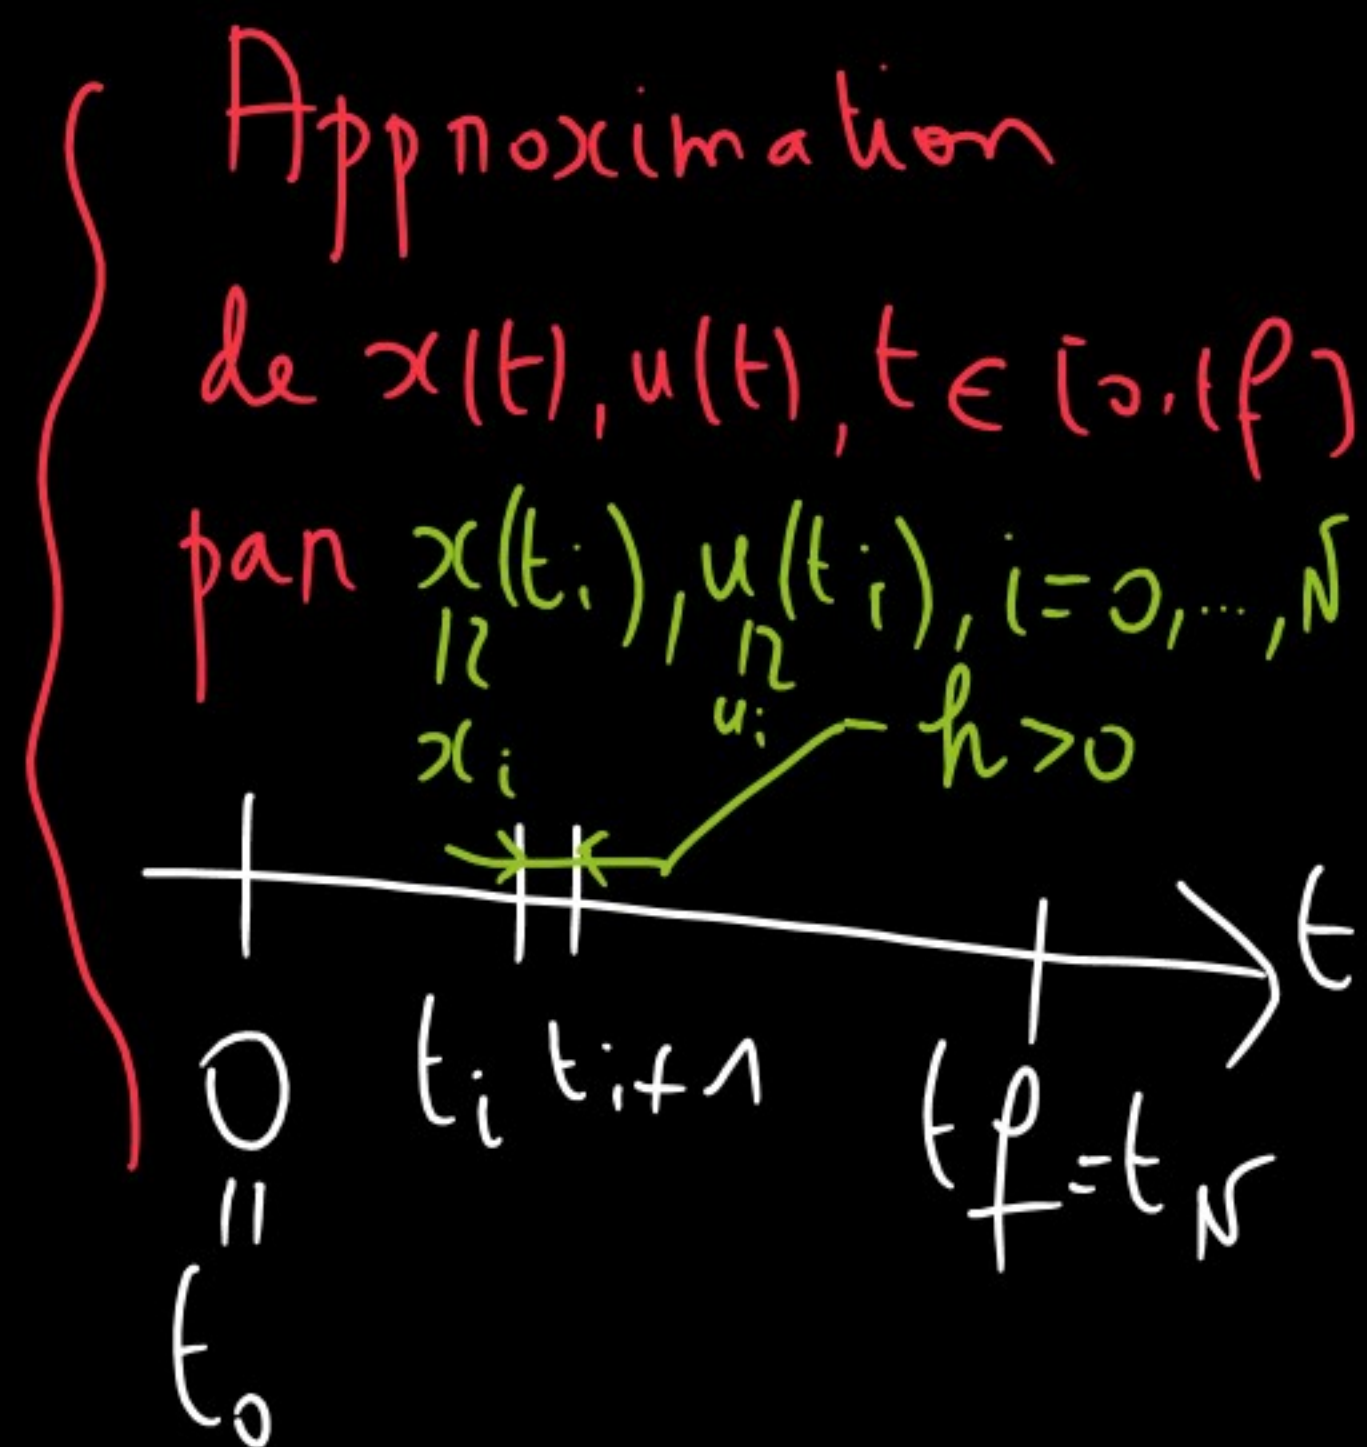 Approximation
de x(t), u(t), t ∈ [0, tf]
par x(ti), u(ti), i=0,...,N
≃ ≃
xi ui h>0
t
0 ti ti+1 tf=tN
=
t0